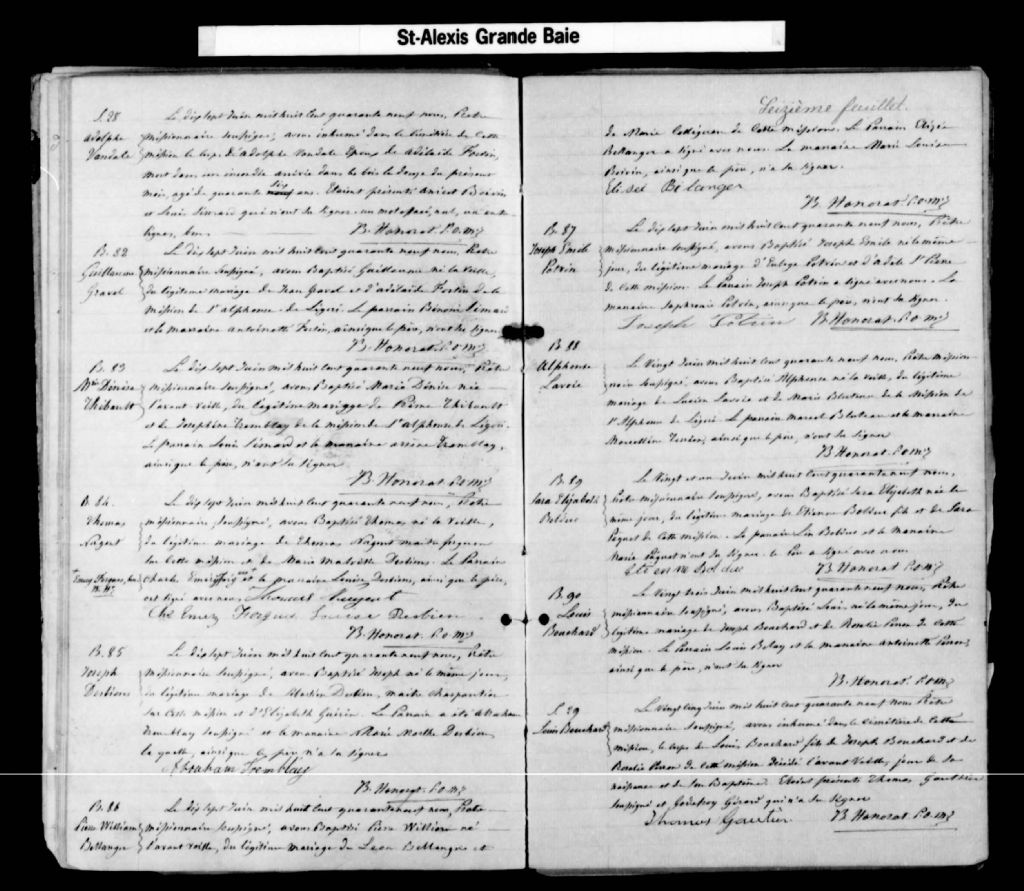 St-Alexis Grande Baie
S. 28
Adolphe
Vandale
Le dix sept Juin mil huit cent quarante neuf nous, Prêtre
missionnaire soussigné, avons inhumé dans le cimetière de cette
mission le corps de Adolphe Vandale Epoux de Adelaide Fortin,
mort dans un incendie arrivée dans le bois le douze du présent
mois, agé de quarante six ans. Etaient présents Boivin
et Louis Simard qui n'ont su signer. un mot effacé, nul, un entre-
lignes, bon.
B. Honorat P.o.m.j
B. 82
Guillaume
Gravel
Le dix sept Juin mil huit cent quarante neuf nous, Prêtre
missionnaire soussigné, avons Baptisé Guillaume né la veille,
du légitime mariage de Jean Gravel et d'adelaide Fortin de la
mission de St alphonse de Ligori. Le parrain Bénoni Simard
et la marraine antoinette Fortin, ainsi que le père, n'ont su signer
B. Honorat P.o.m.j
B. 83
Mie Denise
Thibault
Le dix sept Juin mil huit cent quarante neuf nous, Prêtre
missionnaire soussigné, avons Baptisé Marie Denise née
l'avant-veille, du légitime mariage de Thibault
et de Josephine Tremblay de la mission de St alphonse de Ligori.
Le parrain Louis Simard et la marraine Tremblay,
ainsi que le père, n'ont su signer
B. Honorat P.o.m.j
B. 84
Thomas
Nugent
Le dix sept Juin mil huit cent quarante neuf nous, Prêtre
missionnaire soussigné, avons Baptisé Thomas né la veille,
du légitime mariage de Thomas Nugent maitre forgeron
sur cette mission et de Marie Desbiens. Le Parrain
Charles et la marraine Louise Desbiens, ainsi que le père,
ont signé avec nous. Thomas Nugent
Chs Emez Fergus Louise Desbien
B. Honorat P.o.m.j
B. 85
Joseph
Desbiens
Le dix sept Juin mil huit cent quarante neuf nous, Prêtre
missionnaire soussigné, avons Baptisé Joseph né le même jour,
du légitime mariage de Desbien, maitre charpentier
sur cette mission et d'Elizabeth Guérin. Le Parrain a été Abraham
Tremblay soussigné et la marraine Marie Marthe Desbien,
laquelle, ainsi que le père n'a su signer
Abraham Tremblay
B. Honorat P.o.m.j
B. 86
Pierre William
Bellanger
Le dix sept Juin mil huit cent quarante neuf nous, Prêtre
missionnaire soussigné, avons Baptisé Pierre William né
l'avant veille, du légitime mariage de Leon Bellanger et
Seizième feuillet.
de Marie de cette mission. Le Parrain Elizée
Bellanger a signé avec nous. La marraine Marie Louise
Boivin, ainsi que le père, n'a su signer.
Eliseé Bélanger
B. Honorat P.o.m.j
B. 87
Joseph Emile
Potvin
Le dix sept Juin mil huit cent quarante neuf nous, Prêtre
missionnaire soussigné, avons Baptisé Joseph Emile né le même
jour, du légitime mariage d'Eusèbe Potvin et d'Adele St Pierre
de cette mission. Le Parrain Joseph Potvin a signé avec nous. La
marraine Potvin, ainsi que le père, n'ont su signer.
Joseph Potvin B. Honorat P.o.m.j
B. 88
Alphonse
Lavoie
Le Vingt Juin mil huit cent quarante neuf nous, Prêtre mission-
naire soussigné, avons Baptisé Alphonse né la veille, du légitime
mariage de Lucien Lavoie et de Marie Bluteau de la Mission de
St Alphonse de Ligori. Le parrain Marcel Bluteau et la marraine
Marcelline ainsi que le père, n'ont su signer
B. Honorat P.o.m.j
B. 89
Sara Elizabeth
Bolduc
Le Vingt et un Juin mil huit cent quarante neuf nous,
Prêtre missionnaire soussigné, avons Baptisé Sara Elizabeth née le
même jour, du légitime mariage de Etienne Bolduc fils et de Sara
Paquet de cette mission. Le parrain Bolduc et la marraine
Marie Paquet n'ont su signer. Le Père a signé avec nous
Etienne Bolduc B. Honorat P.o.m.j
B. 90
Louis
Bouchard
Le Vingt trois Juin mil huit cent quarante neuf nous, Prêtre
missionnaire soussigné, avons Baptisé Louis né le même jour, du
légitime mariage de Joseph Bouchard et de Rosalie Peron de cette
mission. Le Parrain Louis Belay et la marraine antoinette Peron,
ainsi que le père, n'ont su signer
B. Honorat P.o.m.j
S. 29
Louis Bouchard
Le Vingt cinq Juin mil huit cent quarante neuf nous Prêtre
missionnaire soussigné, avons inhumé dans le cimetière de cette
mission, le corps de Louis Bouchard fils de Joseph Bouchard et de
Rosalie Peron de cette mission décédé l'avant Veille, jour de sa
naissance et de son Baptême. Etaient présents Thomas Gauthier
soussigné et Godefroy Girard qui n'a su signer
Thomas Gautier B. Honorat P.o.m.j